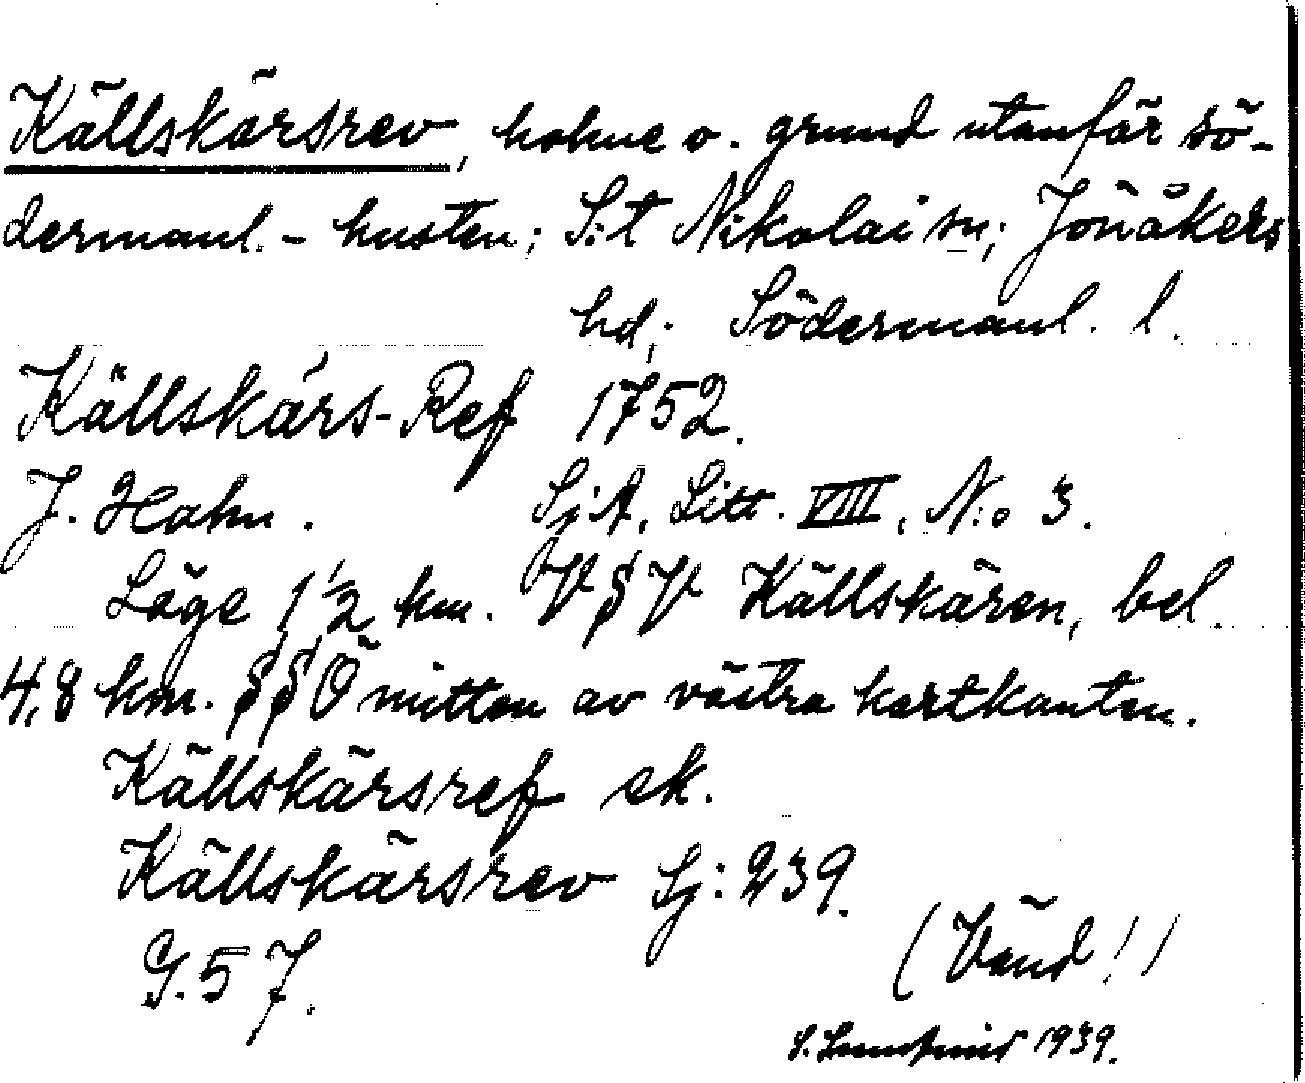 Källskärsrev, holme o. grund utanför sö-
dermanl. - kusten; S:t Nikolai sn; Jönåkers
hd; Södermanl. l.
Källskärs-Ref 1752.
J. Hahn. SjA, Litt. VIII, N:o 3.
Läge 1 1/2 km. VSV Källskären, bel.
4,8 km. SSÖ mitten av västra kartkanten.
Källskärsref ek.
Källskärsrev Sj: 239.
G. 57.
(Vänd!)
1939.